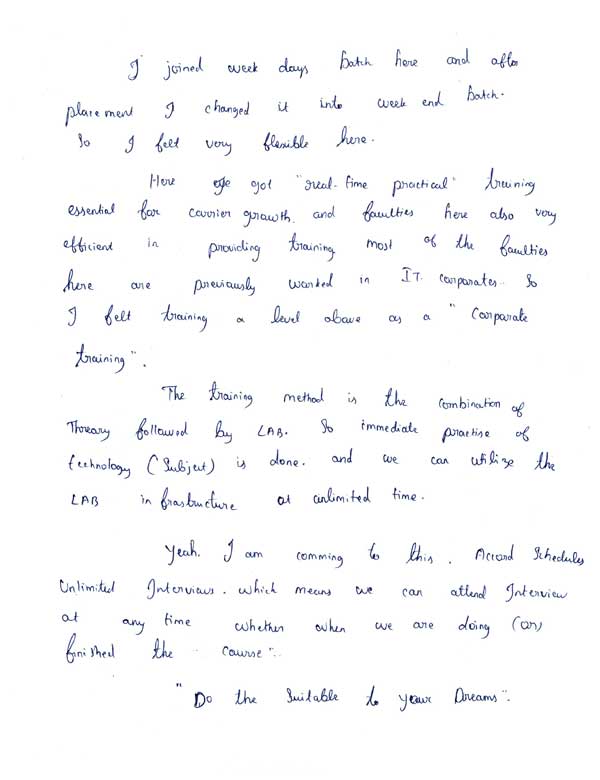 I joined week days batch here and after
placement I changed it into week end batch.
So I felt very flexible here.
Here we got "real-time practical" training
essential for carrier growth. and faculties here also very
efficient in providing training most of the faculties
here are previously worked in IT corporates. So
I felt training a level above as a "Corporate
training".
The training method is the combination of
Threary followed by LAB. So immediate practise of
technology (Subject) is done. and we can utilize the
LAB infrastructure at unlimited time.
Yeah. I am comming to this. Accord Schedules
Unlimited Interviews. which means we can attend Interview
at any time whether when we are doing (or)
finished the course".
"Do the Suitable to your Dreams".